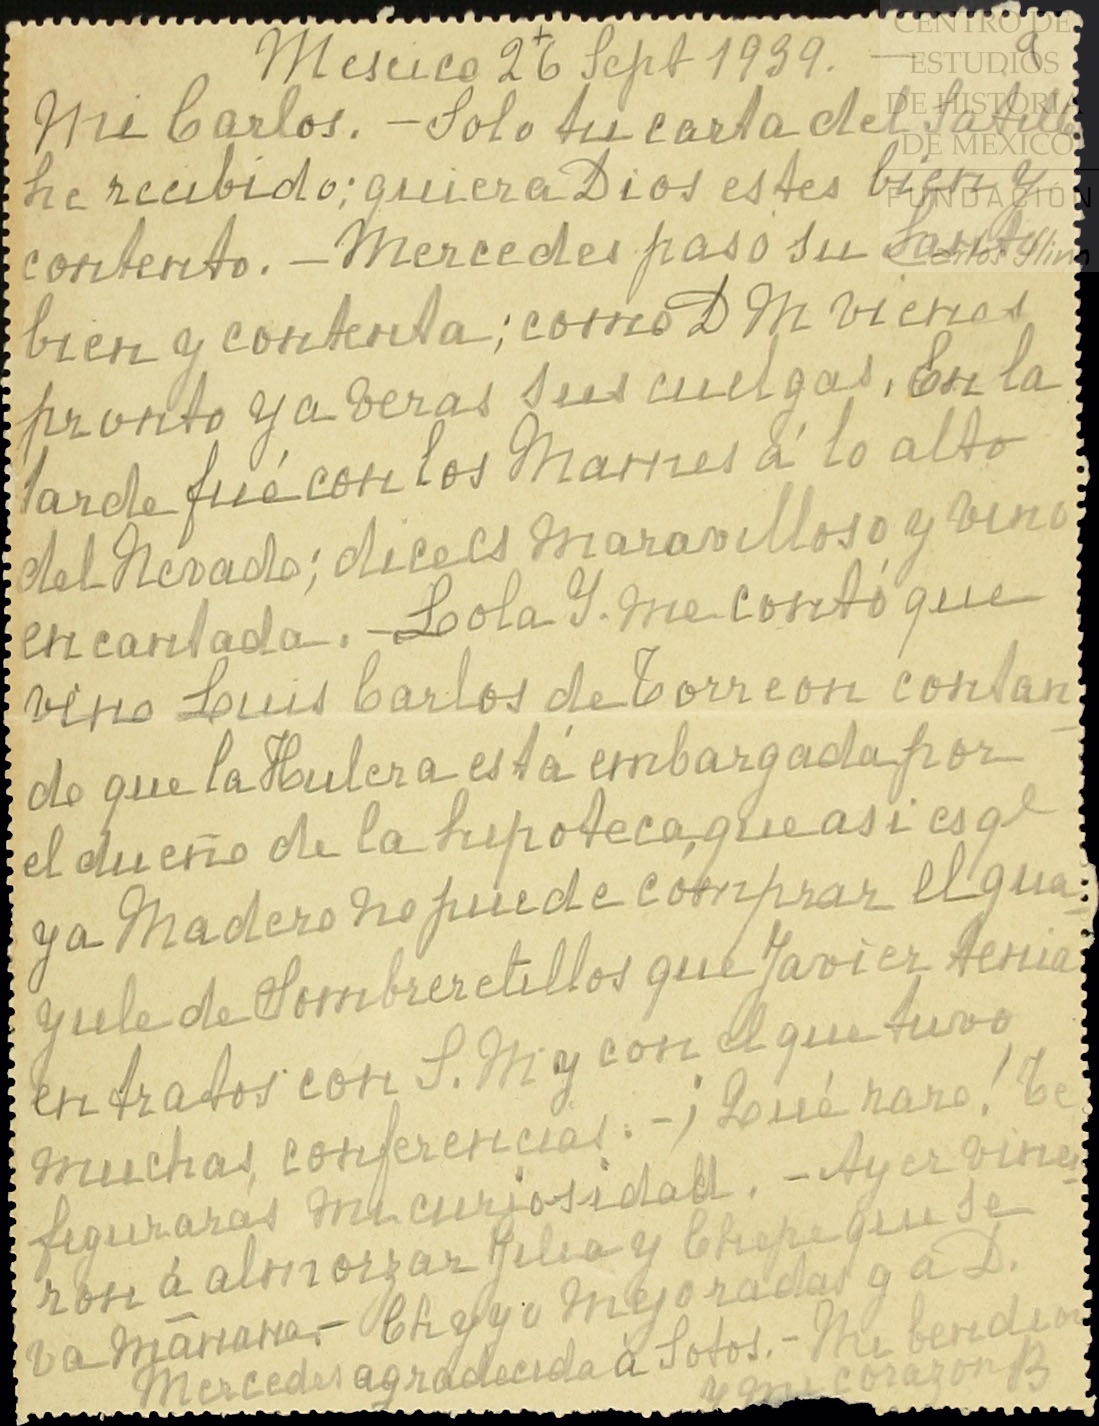 Mexico 26 Sept 1939. — 9
CENTRO DE
ESTUDIOS
DE HISTORIA
DE MÉXICO
FUNDACIÓN
Carlos Slim
Mi Carlos. — Solo tu carta del Saltillo
he recibido; quiera Dios estes bien y
contento. — Mercedes pasó su Santo
bien y contenta; como D M vienes
pronto ya veras sus cuelgas. En la
tarde fué con los Mames á lo alto
del Nevado; dice es maravilloso y vino
encantada. — Lola Y. me contó que
vino Luis Carlos de Torreon contan
do que la Hulera está embargada por
el dueño de la hipoteca, que asi es ql
ya Madero no puede comprar el gua-
yule de Sombreretillos que Javier tenia
en tratos con S. M y con el que tuvo
muchas conferencias. — ¡Qué raro! Te
figuraras mi curiosidad. — Ayer vinie
ron á almorzar Julia y Chepe que se
va mañana. — Ch y yo mejoradas g a D.
Mercedes agradecida á Sotos. — Mi bendion
y mi corazon B